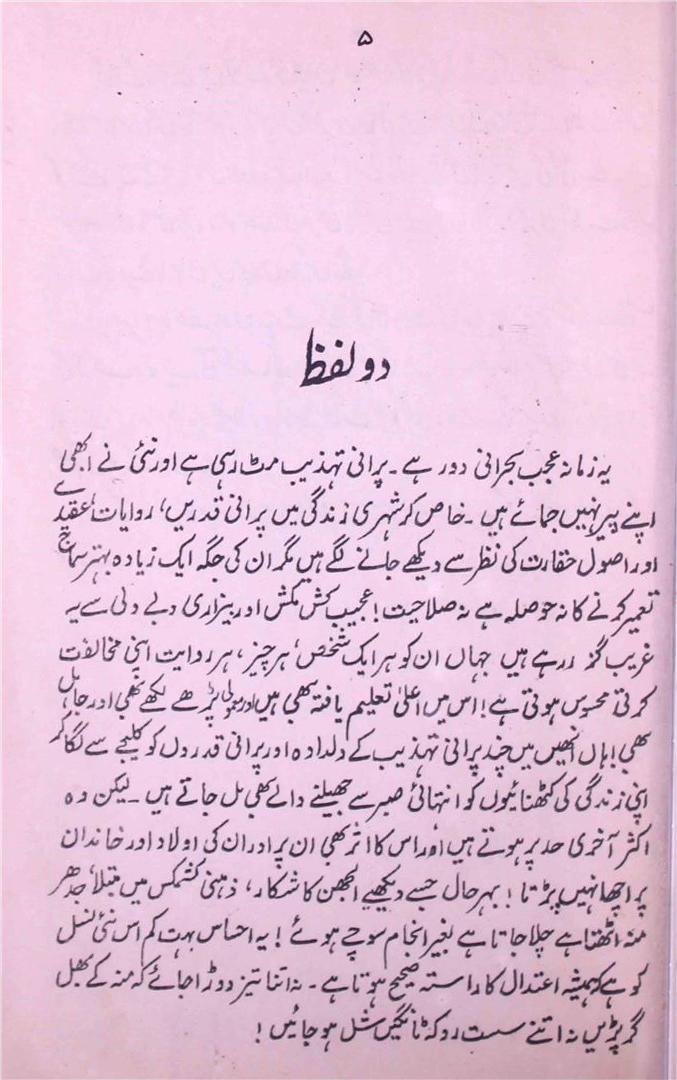 ۵
دو لفظ
یہ زمانہ عجب بحرانی دور ہے۔ پرانی تہذیب مٹ رہی ہے اور نئی نے ابھی
اپنے پیر نہیں جمائے ہیں۔ خاص کر شہری زندگی میں پرانی قدریں، روایات، عقیدے
اور اصول حقارت کی نظر سے دیکھے جانے لگے ہیں مگر ان کی جگہ ایک زیادہ بہتر سماج
تعمیر کرنے کا نہ حوصلہ ہے نہ صلاحیت! عجیب کش مکش اور بیزاری و بے دلی سے یہ
غریب گزر رہے ہیں جہاں ان کو ہر ایک شخص، ہر چیز، ہر روایت اپنی مخالفت
کرتی محسوس ہوتی ہے! اس میں اعلیٰ تعلیم یافتہ بھی ہیں اور معمولی پڑھے لکھے بھی اور جاہل
بھی! ہاں انھیں میں چند پرانی تہذیب کے دلدادہ اور پرانی قدروں کو کلیجے سے لگا کر
اپنی زندگی کی کٹھنائیوں کو انتہائی صبر سے جھیلنے والے بھی مل جاتے ہیں۔ لیکن وہ
اکثر آخری حد پر ہوتے ہیں اور اس کا اثر بھی ان پر اور ان کی اولاد اور خاندان
پر اچھا نہیں پڑتا! بہر حال جسے دیکھیے الجھن کا شکار، ذہنی کشمکس میں مبتلا، جدھر
منہ اٹھتا ہے چلا جاتا ہے بغیر انجام سوچے ہوئے! یہ احساس بہت کم اس نئی نسل
کو ہے کہ ہمیشہ اعتدال کا راستہ صحیح ہوتا ہے۔ نہ اتنا تیز دوڑا جائے کہ منہ کے بھل
گر پڑیں نہ اتنے سست رو کہ ٹانگیں شل ہو جائیں!